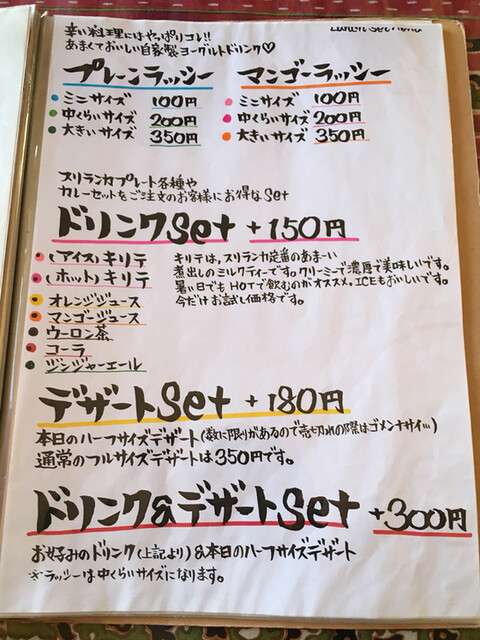 Lunch Set Menu
辛い料理にはやっぱりコレ!!
あまくておいしい自家製ヨーグルトドリンク♡
プレーンラッシー
ミニサイズ 100円
中くらいサイズ 200円
大きいサイズ 350円
マンゴーラッシー
ミニサイズ 100円
中くらいサイズ 200円
大きいサイズ 350円
スリランカプレート各種や
カレーセットをご注文のお客様にお得なSet
ドリンクSet +150円
(アイス)キリテ
(ホット)キリテ
オレンジジュース
マンゴージュース
ウーロン茶
コーラ
ジンジャーエール
キリテは、スリランカ定番のあまーい
煮出しのミルクティーです。クリーミーで濃厚で美味しいです。
暑い日でもHOTで飲むのがオススメ。ICEもおいしいです。
今だけお試し価格です。
デザートSet +180円
本日のハーフサイズデザート(数に限りがあるので売切れの際はゴメンナサイ…)
通常のフルサイズデザートは350円です。
ドリンク&デザートSet +300円
お好みのドリンク(上記より)&本日のハーフサイズデザート
※ラッシーは中くらいサイズになります。